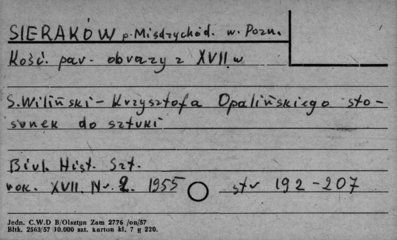 SIERAKÓW p. Międzychód. w. Pozn.
Kość. par. obrazy z XVII w
S. Wiliński - Krzysztofa Opalińskiego sto-
sunek do sztuki
Biul. Hist. Szt.
rok. XVII, Nr. 2. 1955 str 192-207
Jedn. C.W.D B/Olsztyn Zam 2776 /on/57
Bltk. 2563/57 10.000 szt. karton kl. 7 g 220.